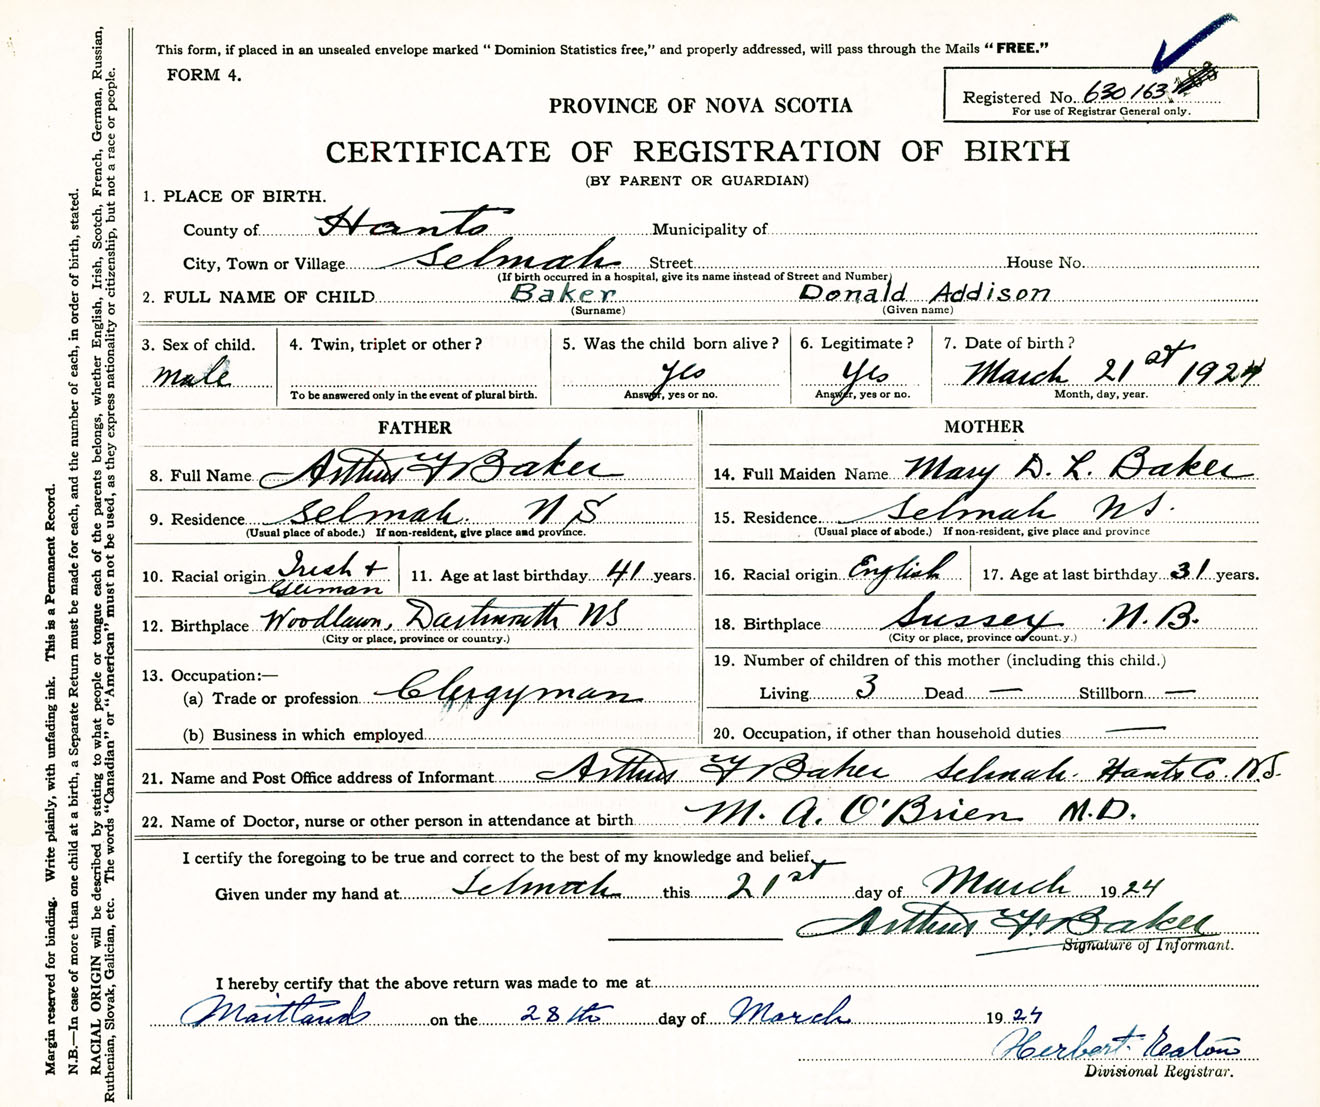 This form, if placed in an unsealed envelope marked “ Dominion Statistics free,” and properly addressed, will pass through the Mails “ FREE.”
FORM 4.
Registered No. 630163
For use of Registrar General only.
PROVINCE OF NOVA SCOTIA
CERTIFICATE OF REGISTRATION OF BIRTH
(BY PARENT OR GUARDIAN)
1. PLACE OF BIRTH.
County of Hants Municipality of
City, Town or Village Selmah Street House No.
(If birth occurred in a hospital, give its name instead of Street and Number)
2. FULL NAME OF CHILD Baker Donald Addison
(Surname) (Given name)
3. Sex of child. 4. Twin, triplet or other? 5. Was the child born alive? 6. Legitimate? 7. Date of birth?
male yes yes March 21st 1924
To be answered only in the event of plural birth. Answer, yes or no. Answer, yes or no. Month, day, year.
FATHER MOTHER
8. Full Name Arthur F Baker 14. Full Maiden Name Mary D. L. Baker
9. Residence Selmah. N S 15. Residence Selmah NS.
(Usual place of abode.) If non-resident, give place and province. (Usual place of abode.) If non-resident, give place and province
10. Racial origin Irish + German 11. Age at last birthday 41 years. 16. Racial origin English 17. Age at last birthday 31 years.
12. Birthplace Woodlawn, Dartmouth NS 18. Birthplace Sussex N.B.
(City or place, province or country.) (City or place, province or count.y.)
19. Number of children of this mother (including this child.)
13. Occupation:—
(a) Trade or profession Clergyman Living 3 Dead — Stillborn —
(b) Business in which employed 20. Occupation, if other than household duties —
21. Name and Post Office address of Informant Arthur F Baker Selmah. Hants Co. N.S.
22. Name of Doctor, nurse or other person in attendance at birth M. A. O'Brien M.D.
I certify the foregoing to be true and correct to the best of my knowledge and belief,
Given under my hand at Selmah this 21st day of March 1924
Arthur F. Baker
Signature of Informant.
I hereby certify that the above return was made to me at
Maitland on the 28th day of March 1924
Herbert Eaton
Divisional Registrar.
Margin reserved for binding. Write plainly, with unfading ink. This is a Permanent Record.
N.B.—In case of more than one child at a birth, a Separate Return must be made for each, and the number of each, in order of birth, stated.
RACIAL ORIGIN will be described by stating to what people or tongue each of the parents belongs, whether English, Irish, Scotch, French, German, Russian,
Ruthenian, Slovak, Galician, etc. The words “Canadian” or “American” must not be used, as they express nationality or citizenship, but not a race or people.